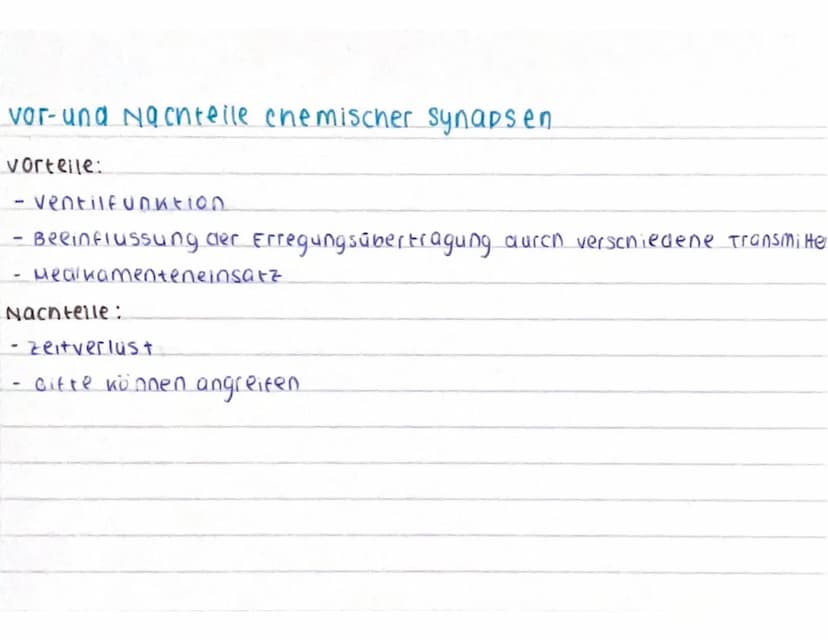 Vor- und Nachteile chemischer Synapsen
Vorteile:
- Ventilfunktion
- Beeinflussung der Erregungsübertragung durch verschiedene Transmitte
- Medikamenteneinsatz
Nachteile:
- Zeitverlust
- Gifte können angreifen